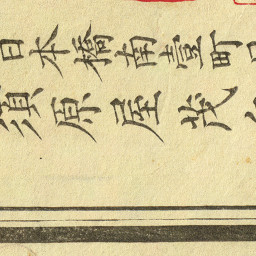 日本橋南壹町目
須原屋茂